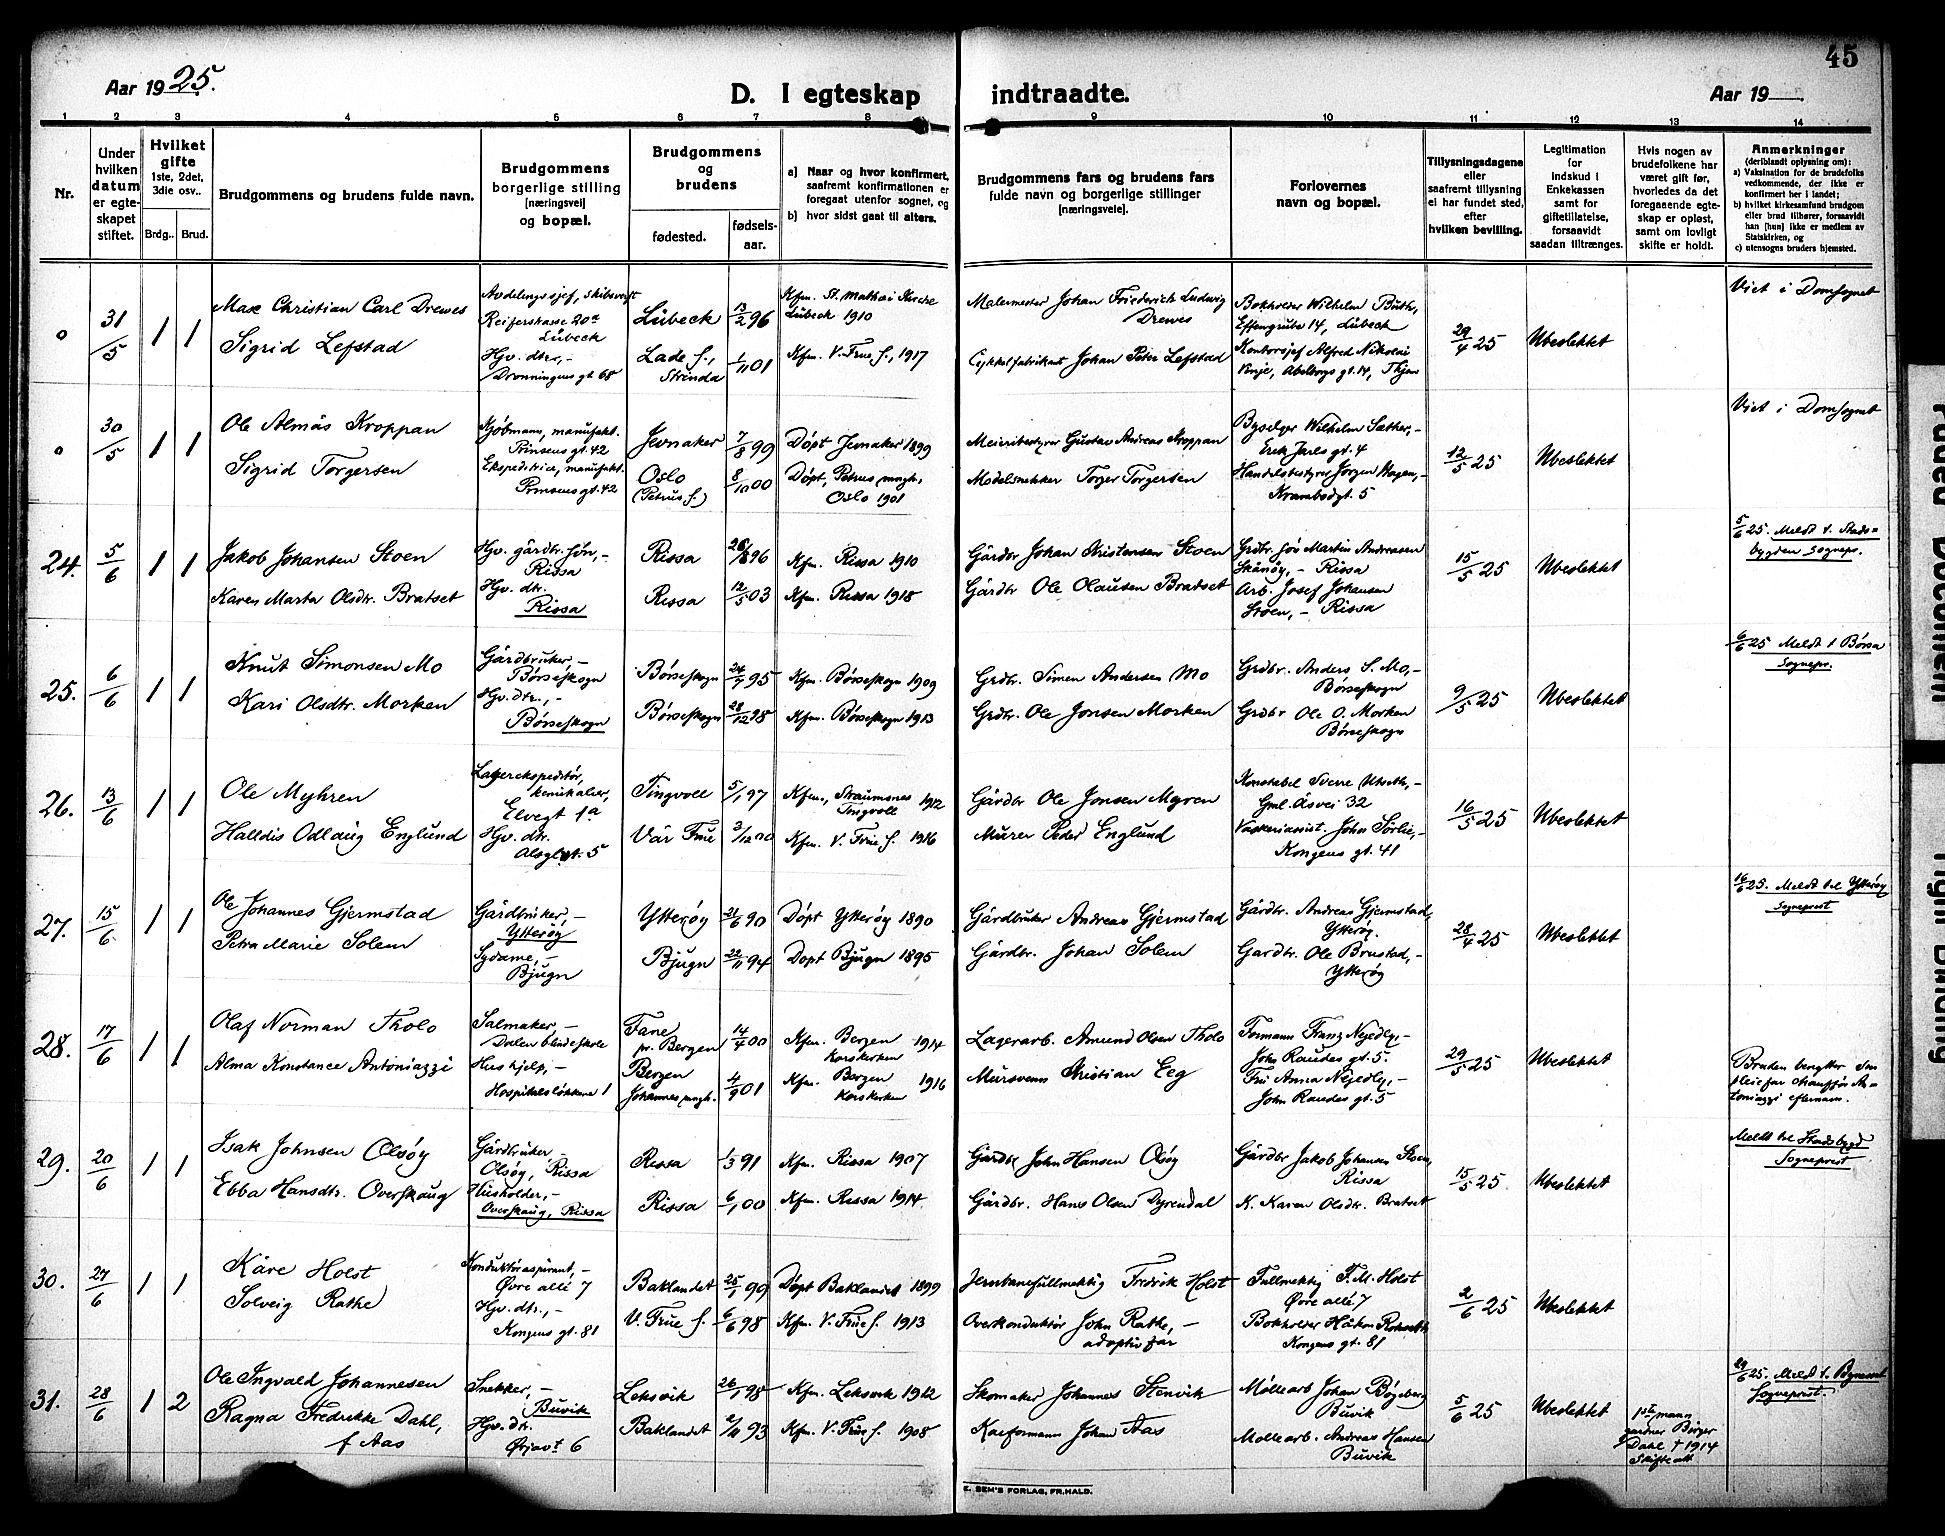 45
Aar 1925.
D. I egteskap indtraadte.
Aar 19
1 2 3 4 5 6 7 8 9 10 11 12 13 14
Nr.
Under
hvilken
datum
er egte-
skapet
stiftet.
Hvilket
gifte
1ste, 2det,
3die osv..
Brdg.. Brud.
Brudgommens og brudens fulde navn.
Brudgommens
borgerlige stilling
[næringsvei]
og bopæl.
Brudgommens
og
brudens
fødested.
fødsels-
aar.
a) Naar og hvor konfirmert,
saafremt konfirmationen er
foregaat utenfor sognet, og
b) hvor sidst gaat til alters.
Brudgommens fars og brudens fars
fulde navn og borgerlige stillinger
[næringsveie].
Forlovernes
navn og bopæl.
Tillysningsdagene
eller
saafremt tillysning
ei har fundet sted,
efter
hvilken bevilling.
Legitimation
for
indskud i
Enkekassen
samt for
giftetillatelse,
forsaavidt
saadan tiltrænges.
Hvis nogen av
brudefolkene har
været gift før,
hvorledes da det
foregaaende egte-
skap er opløst,
samt om lovligt
skifte er holdt.
Anmerkninger
(deriblandt oplysning om):
a) Vaksination for de brudefolks
vedkommende, der ikke er
konfirmert her i landet;
b) hvilket kirkesamfund brudgom
eller brud tilhører, forsaavidt
han [hun] ikke er medlem av
Statskirken, og
c) utensogns bruders hjemsted.
o 31/5 1 1
Max Christian Carl Drewes
Sigrid Lefstad
Avdelingssjef, skibsverft
Reiferstrasse 20a
Lübeck
Hjv. dtr., -
Dronningens gt 68
Lübeck 13/2 96
Lade s., Strinda 1/11 01
Kfm. St. Mathäi Kirche
Lübeck 1910
Kfm. V. Frue s., 1917
Malermester Johan Friederich Ludwig
Drewes
Cykkelfabrikant Johan Peter Lefstad
Bokholder Wilhelm Büth,
Effengrube 14, Lübeck
Kontorsjef Alfred Nikolai
Vinje, Abelborgs gt. 14, Thjem
29/4 25
Ubeslektet
Viet i Domsognet
o 30/5 1 1
Ole Almås Kroppan
Sigrid Torgersen
Kjøbmann, manufakt.
Prinsens gt. 42
Ekspeditrice, manufakt.
Prinsens gt. 42
Jevnaker 7/8 99
Oslo (Petrus s.) 8/10 00
Døpt Jevnaker 1899
Døpt, Petrus mngh.,
Oslo 1901
Meieribestyrer Gustav Andreas Kroppan
Modelsnekker Torger Torgersen
Byselger Wilhelm Sæther, -
Erik Jarls gt. 4
Handelsbestyrer Jørgen Hagen, -
Krambodgt. 5
12/5 25
Ubeslektet
Viet i Domsognet
24. 5/6 1 1
Jakob Johansen Stoen
Karen Marta Olsdtr. Bratset
Hjv. gårdbr. søn, -
Rissa
Hjv. dtr.
Rissa
Rissa 26/8 96
Rissa 12/5 03
Kfm. Rissa 1910
Kfm. Rissa 1918
Gårdbr Johan Kristensen Stoen
Gårdbr Ole Olausen Bratset
Grdbr. søn Martin Andreasen
Skånøy, - Rissa
Arb. Josef Johansen
Stoen, - Rissa
15/5 25
Ubeslektet
5/6 25. Meldt t. Stads-
bygden Sognepr.
25. 6/6 1 1
Knut Simonsen Mo
Kari Olsdtr. Morken
Gårdbruker, -
Børseskogn
Hjv. dtr., -
Børseskogn
Børseskogn 24/7 95
Børseskogn 28/12 98
Kfm. Børseskogn 1909
Kfm. Børseskogn 1913
Grdbr. Simen Andersen Mo
Grdbr. Ole Jonsen Morken
Grdbr. Anders S. Mo, -
Børseskogn
Grdbr Ole O. Morken
Børseskogn
9/5 25
Ubeslektet
6/6 25 Meldt t Børsa
Sognepr.
26. 13/6 1 1
Ole Myhren
Halldis Odlaug Englund
Lagerekspeditør,
kemikalier,
Elvegt 1a
Hjv. dtr.
Alsglgt. 5
Tingvoll 5/1 97
Vår Frue 3/12 00
Kfm., Straumsnes 1912
Tingvoll
Kfm. V. Frue s. 1916
Gårdbr Ole Jonsen Myren
Murer Peder Englund
Konstabel Sverre Utseth, -
Gml. Åsvei 32
Vaskeriassist. John Sørlie, -
Kongens gt. 41
16/5 25
Ubeslektet
27. 15/6 1 1
Ole Johannes Gjermstad
Petra Marie Solem
Gårdbruker, -
Ytterøy
Sydame, -
Bjugn
Ytterøy 21/6 90
Bjugn 22/11 94
Døpt Ytterøy 1890
Døpt Bjugn 1895
Gårdbruker Andreas Gjermstad
Gårdbr. Johan Solem
Gårdbr. Andreas Gjermstad,
Ytterøy.
Gardbr. Ole Brustad, -
Ytterøy
28/4 25
Ubeslektet
16/6 25. Meldt til Ytterøy
Sogneprest
28. 17/6 1 1
Olaf Norman Tholo
Alma Konstance Antoniazzi
Salmaker, -
Dalen blindeskole
Hushjelp, -
Hospitalsløkkene 1
Fane pr. Bergen 14/4 00
Bergen Johannes mngh. 4/9 01
Kfm. Bergen 1914
Korskirken
Kfm. Bergen 1916
Korskirken
Lagerarb. Amund Olsen Tholo
Mursvenn Kristian Eeg
Formann Franz Nejedly, -
John Raudes gt. 5.
Fru Anna Nejedly, -
John Raudes gt. 5
29/5 25
Ubeslektet
Bruden benytter sin
pleiefar chauffør An-
toniazzi efternavn.
29. 20/6 1 1
Isak Johnsen Olsøy
Ebba Hansdtr. Overskaug
Gårdbruker -
Olsøy, Rissa
Husholder, -
Overskaug, Rissa
Rissa 1/3 91
Rissa 6/1 00
Kfm. Rissa 1907
Kfm. Rissa 1914
Gårdbr John Hansen Olsøy
Gårdbr. Hans Olsen Dyrendal
Gårdbr Jakob Johansen Stoen,
Rissa
K. Karen Olsdtr. Bratset
15/5 25
Ubeslektet
Meldt til Stadsbygd
Sogneprest
30. 27/6 1 1
Kåre Holst
Solveig Rathe
Konduktøraspirant, -
Øvre allé 7
Hjv. dtr., -
Kongens gt. 81
Baklandet 25/1 99
V. Frue s. 6/6 98
Døpt Baklandet 1899
Kfm. V. Frue s. 1913
Jernbanefullmektig Fredrik Holst
Overkonduktør John Rathe, -
adoptivfar
Fullmektig F. M. Holst
Øvre allé 7
Bokholder Håkon Rokseth
Kongens gt. 81
2/6 25
Ubeslektet
31. 28/6 1 2
Ole Ingvald Johannesen
Ragna Fredrikke Dahl,
f Aas
Snekker, -
Buvik
Hjv. dtr.
Ørjavt 6
Leksvik 26/1 98
Baklandet 2/11 93
Kfm. Leksvik 1912
Kfm. V. Frue s. 1908
Skomaker Johannes Stenvik
Karformann Johan Aas
Møllearb Johan Bøgeberg
Buvik
Møllearb. Andreas Hansen
Buvik
5/6 25
Ubeslektet
1ste mann
gardner Birger
Dahl † 1914
Skifte att
29/6 25. Meldt t. Bynesset
Sogneprest.
E. SEM'S FORLAG, FR.HALD.